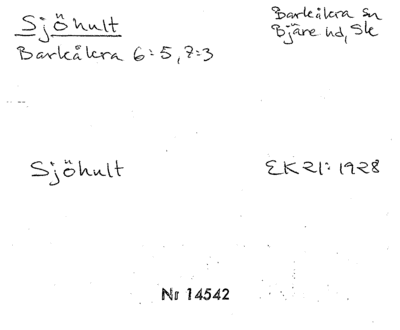 Sjöhult
Barkåkra sn
Bjäre hd, Sk
Barkåkra 6:5, 7:3
Sjöhult
EK 21: 1928
Nr 14542